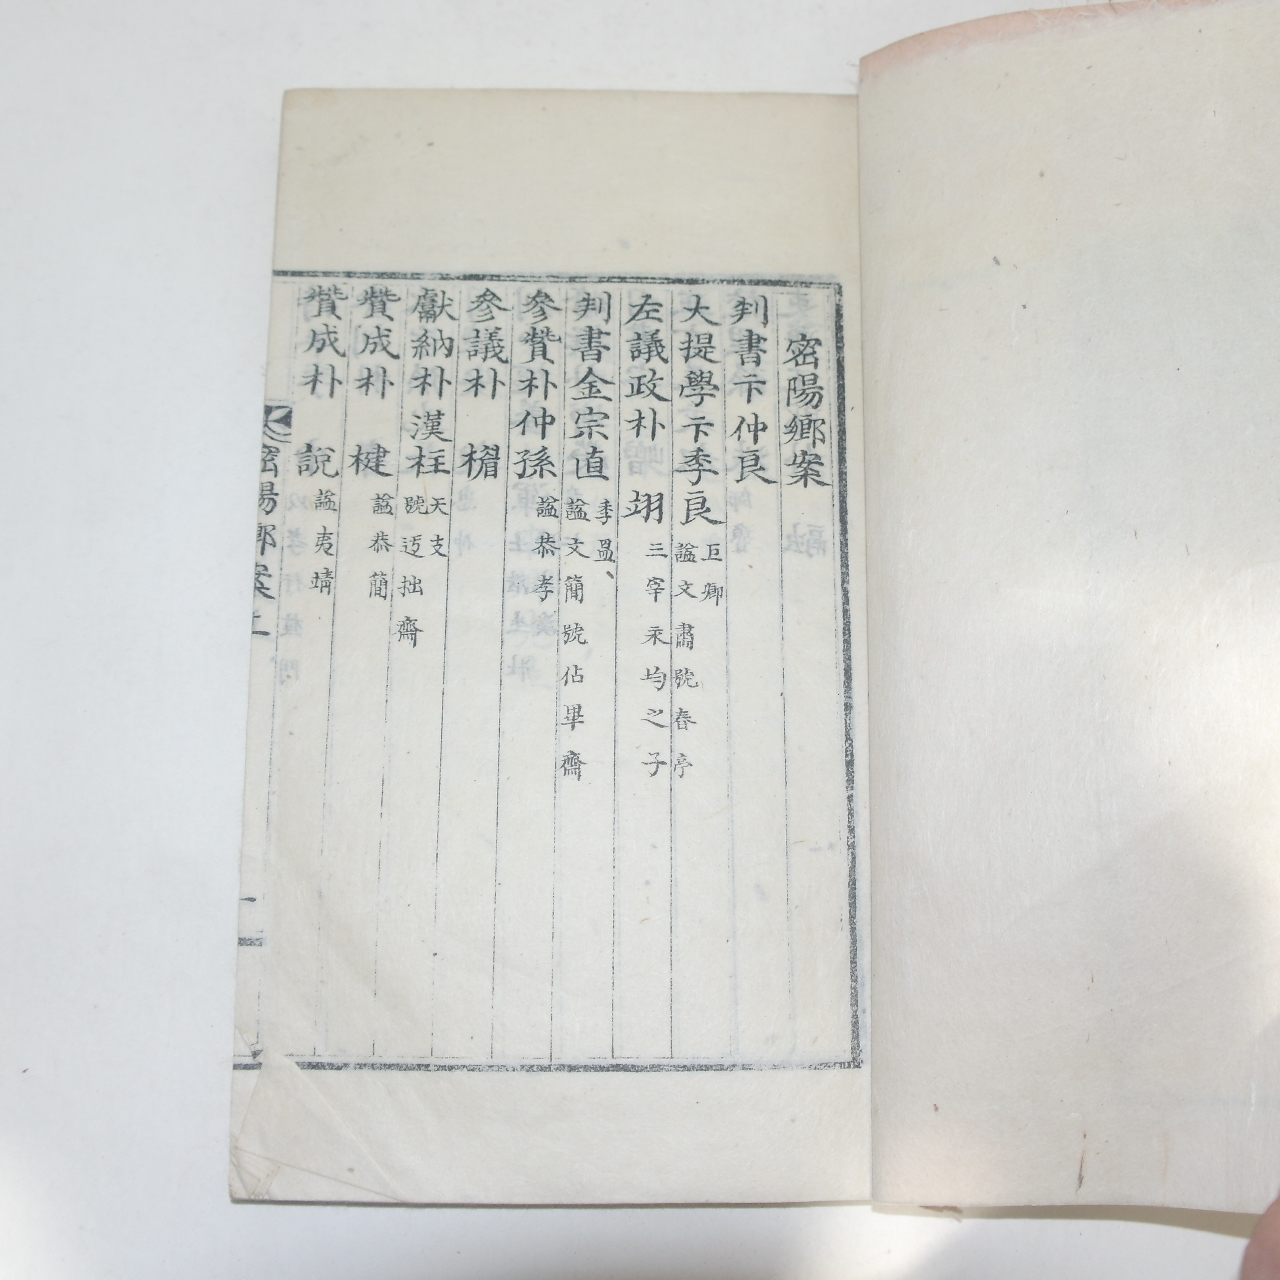 密陽鄉案
判書卞仲良
大提學卞季良 巨卿
諡文肅號春亭
左議政朴 翊 三宰永均之子
判書金宗直 季昷
諡文簡號佔畢齋
參贊朴仲孫 諡恭孝
參議朴 楣
獻納朴漢柱 天支
號迃拙齋
贊成朴 楗 諡恭簡
贊成朴 說 諡夷靖
密陽鄉案上
一